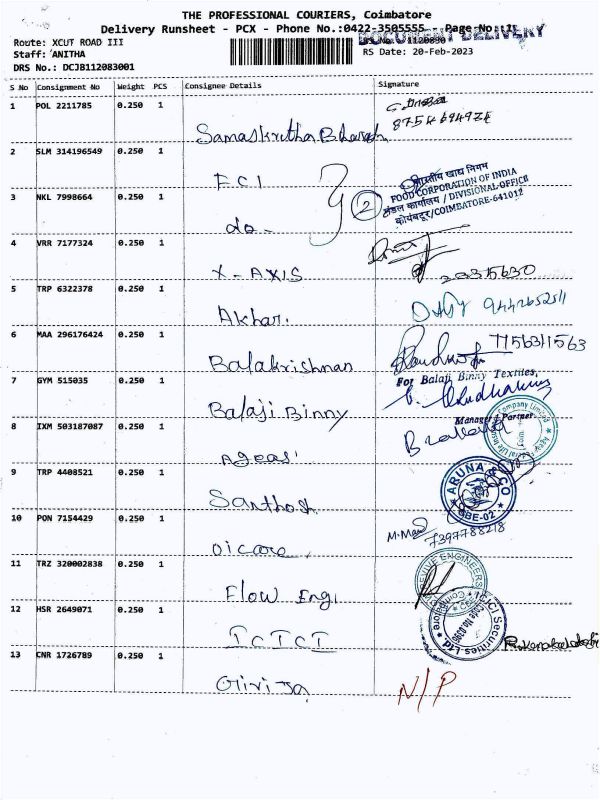 THE PROFESSIONAL COURIERS, Coimbatore
Delivery Runsheet - PCX - Phone No.:0422-3505555 - Page No.:1
DOCUMENT DELIVERY
Route: XCUT ROAD III
Staff: ANITHA
RS Date: 20-Feb-2023
DRS No.: DCJB112083001
S No Consignment No Weight PCS Consignee Details Signature
1 POL 2211785 0.250 1 Samaskrutha Bharath
2 SLM 314196549 0.250 1 FCI
भारतीय खाद्य निगम
FOOD CORPORATION OF INDIA
मंडल कार्यालय / DIVISIONAL OFFICE
कोयंबटूर/COIMBATORE-641012
3 NKL 7998664 0.250 1 do - 2
4 VRR 7177324 0.250 1 X-AXIS
5 TRP 6322378 0.250 1 Akhar.
6 MAA 296176424 0.250 1 Balakrishnan
7 GYM 515035 0.250 1 Balaji Binny
For Balaji Binny Textiles,
Manager / Partner
8 IXM 503187087 0.250 1 Ageas
9 TRP 4408521 0.250 1 Santhosh
ARUNA & CO
CBE-02
10 PON 7154429 0.250 1 oicare 7397788218
11 TRZ 320002838 0.250 1 Flow Eng.
12 HSR 2649071 0.250 1 ICICI
ICICI Securities Ltd
13 CNR 1726789 0.250 1 Girija N/P